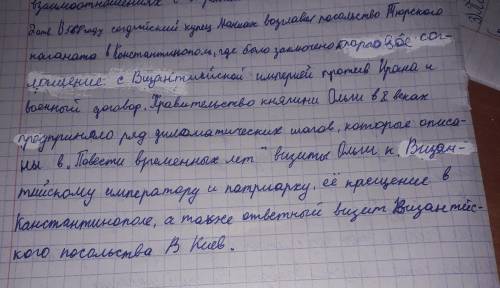 взаимоотношениях с
В 568 году согдийский купец Маниах возглавил посольство Тюрского
каганата в Константинополь, где было заключено торговое сог-
лашение с Византийской империей против Ирана и
военный договор. Правительство княгини Ольги в X веках
предприняло ряд дипломатических шагов, которые описа-
ны в "Повести временных лет" визиты Ольги к Визан-
тийскому императору и патриарху, её крещение в
Канстантинополе, а также ответный визит Византийс-
кого посольства в Киев.